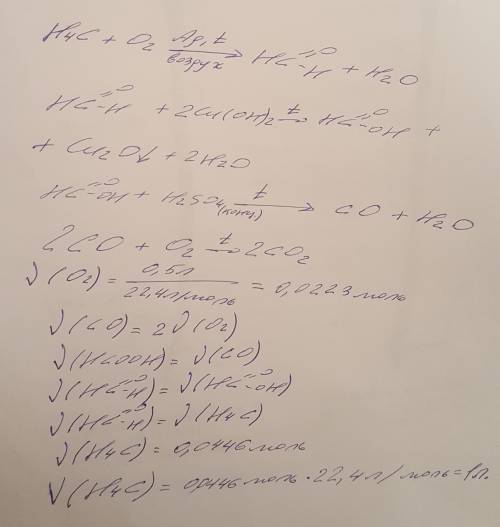 H₄C + O₂ →(Ag, t / воздух) HC=O–H + H₂O
HC=O–H + 2Cu(OH)₂ →(t) HC=O–OH +
+ Cu₂O↓ + 2H₂O
HC=O–OH + H₂SO₄(конц) →(t) CO + H₂O
2CO + O₂ →(t) 2CO₂
ν(O₂) = 0,5л / 22,4л/моль = 0,0223 моль
ν(CO) = 2ν(O₂)
ν(HCOOH) = ν(CO)
ν(HC=O–H) = ν(HC=O–OH)
ν(HC=O–H) = ν(H₄C)
ν(H₄C) = 0,0446 моль
V(H₄C) = 0,0446 моль · 22,4 л/моль = 1л.